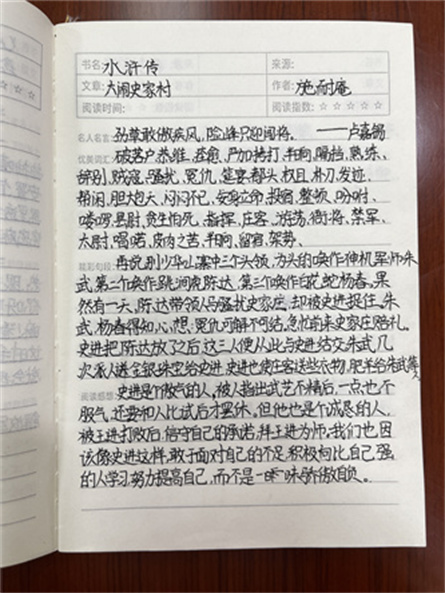 书名: 水浒传 来源:
文章: 大闹史家村 作者: 施耐庵
阅读时间: 阅读指数: ☆☆☆☆☆
名人名言: 劲草敢傲疾风,险峰只迎闯将。 ——卢嘉锡
优美词汇: 破落户 恭维、痊愈、严加拷打、半晌、隔挡、熟练、
辞别、贼寇、骚扰、冤仇、筵宴、都头、权且、朴刀、发迹、
帮闲、胆大包天、闷闷不已、安身立命、投宿、整顿、吩咐、
喽啰、县尉、贪生怕死、指挥、庄客、游荡、衙将、禁军、
太尉、唱喏、皮肉之苦、半晌、留宿、架势、
精彩句段: 再说别少华山寨中三个头领,为头的唤作神机军师朱
武,第二个唤作跳涧虎陈达,第三个唤作白花蛇杨春。果
然有一天,陈达带领人马骚扰史家庄,却被史进捉住,朱
武,杨春得知,心想:冤仇可解不可结,急忙前来史家庄赔礼。
史进把陈达放了之后,这三人便从此与史进结交朱武,几
次派人送金银珠宝给史进,史进也使庄客送些衣物,肥羊给朱武等人
阅读感想: 史进是个傲气的人,被人指出武艺不精后,一点也不
服气,还要和人比试后才罢休,但他也是个诚恳的人,
被王进打败后,信守自己的承诺,拜王进为师,我们也因
该像史进这样,敢于面对自己的不足,积极向比自己强
的人学习,努力提高自己,而不是一味骄傲自负。